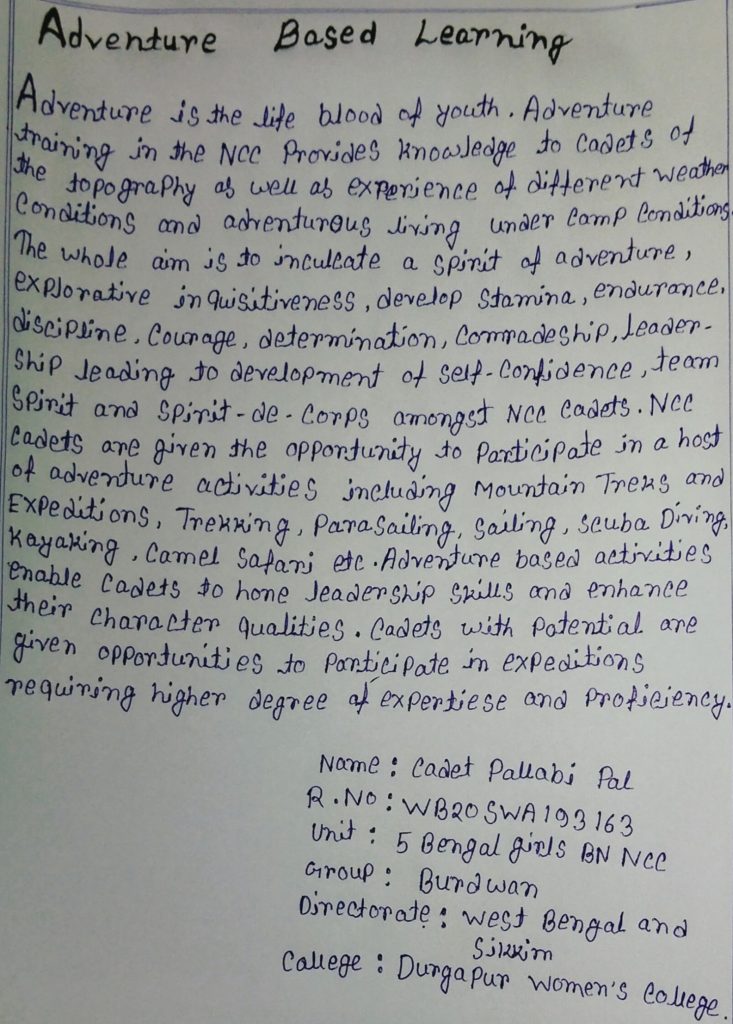 Adventure Based Learning
Adventure is the life blood of youth. Adventure
training in the NCC Provides knowledge to Cadets of
the topography as well as experience of different weather
Conditions and adventurous living under Camp Conditions.
The whole aim is to inculcate a spirit of adventure,
explorative inquisitiveness, develop stamina, endurance,
discipline, Courage, determination, Comradeship, leader-
ship leading to development of self-Confidence, team
Spirit and Spirit-de-Corps amongst NCC Cadets. NCC
Cadets are given the opportunity to Participate in a host
of adventure activities including Mountain Treks and
Expeditions, Trekking, Parasailing, Sailing, Scuba Diving,
Kayaking, Camel Safari etc. Adventure based activities
enable Cadets to hone leadership skills and enhance
their Character qualities. Cadets with Potential are
given opportunities to Participate in expeditions
requiring higher degree of expertiese and Proficiency.
Name : Cadet Pallabi Pal
R.No : WB20SWA193163
Unit : 5 Bengal girls BN NCC
Group : Burdwan
Directorate : West Bengal and
Sikkim
College : Durgapur Women's College.